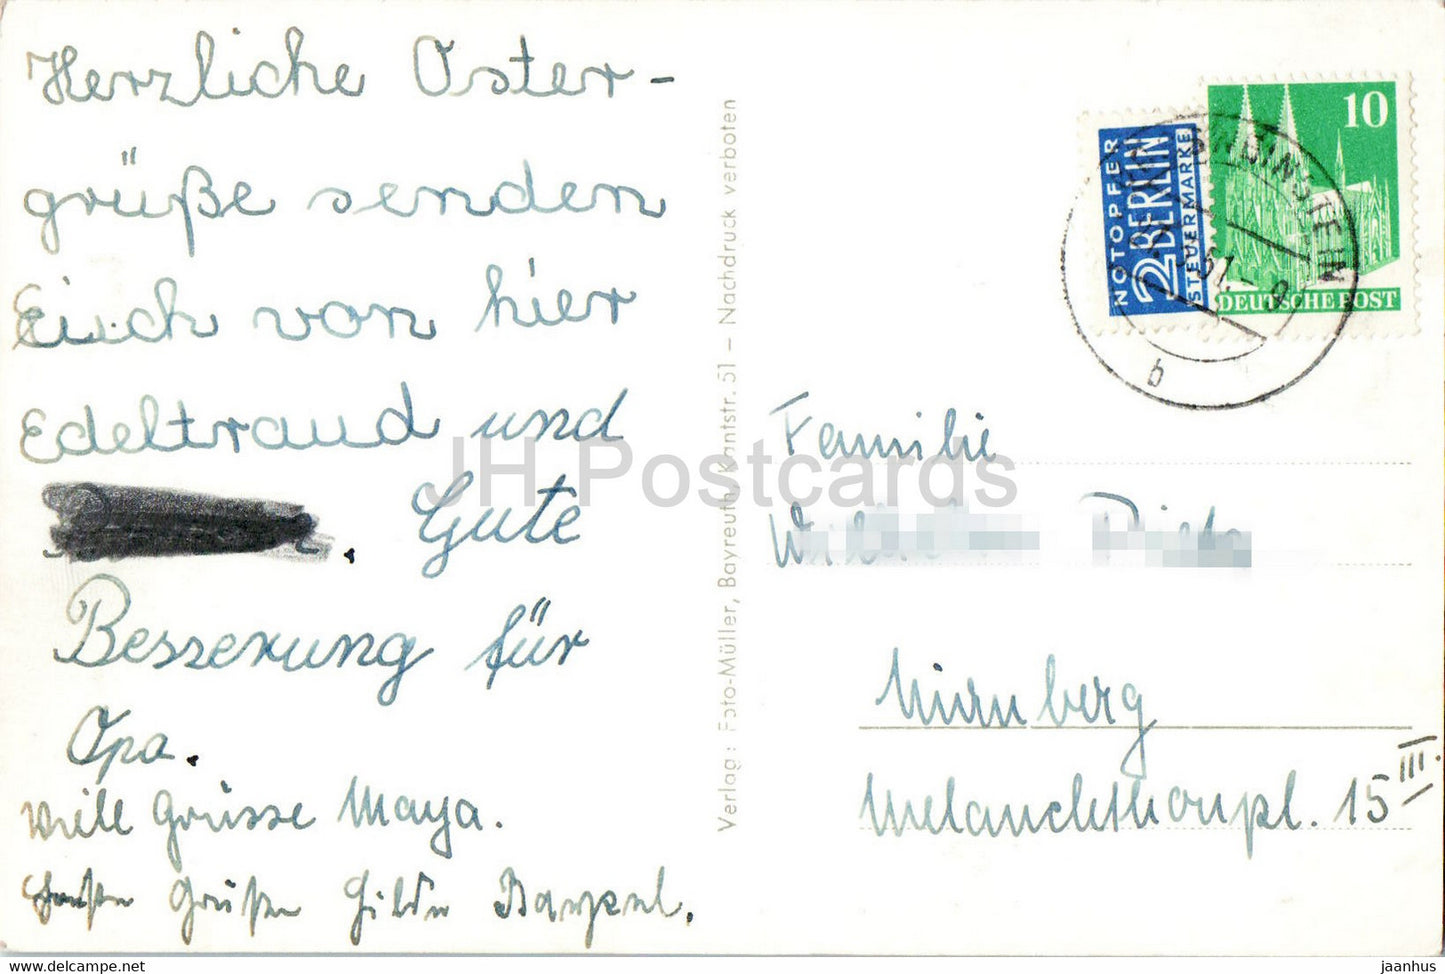 Herzliche Oster-
grüße senden
Euch von hier
Edeltraud und
. Gute
Besserung für
Opa.
Viele Grüsse Maya.
Grüßen Hilde
Verlag: Foto-Müller, Bayreuth, Kantstr. 51 – Nachdruck verboten
NOTOPFER
2 BERLIN
STEUERMARKE
10
DEUTSCHE POST
WEINSTEIN
51.
b
Familie
Nürnberg
Melanchthonpl. 15 III.
JH Postcards
https://www.delcampe.net
jaanhus